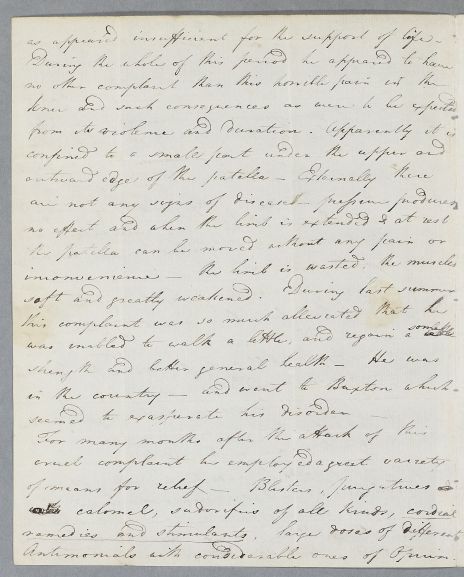 as appeared insufficient for the support of life -
During the whole of this period he appeared to have
no other complaint than this horrible pain in the
knee and such consequences as were to be expected
from its violence and duration. Apparently it is
confined to a small part under the upper and
outward edges of the patella - Externally there
are not any signs of disease - pressure produces
no effect and when the limb is extended & at rest
the patella can be moved without any pain or
inconvenience - the limb is wasted, the muscles
soft and greatly weakened. During last summer
this complaint was so much alleviated that he
was enabled to walk a little, and regain a some
strength and better general health - He was
in the country - and went to Buxton which
seemed to exasperate his disorder -
For many months after the attack of this
cruel complaint he employed a great variety
of means for relief - Blisters, purgatives
calomel, sudorifics of all kinds, cordial
remedies and stimulants, large doses of different
Antimonials with considerable ones of Opium.